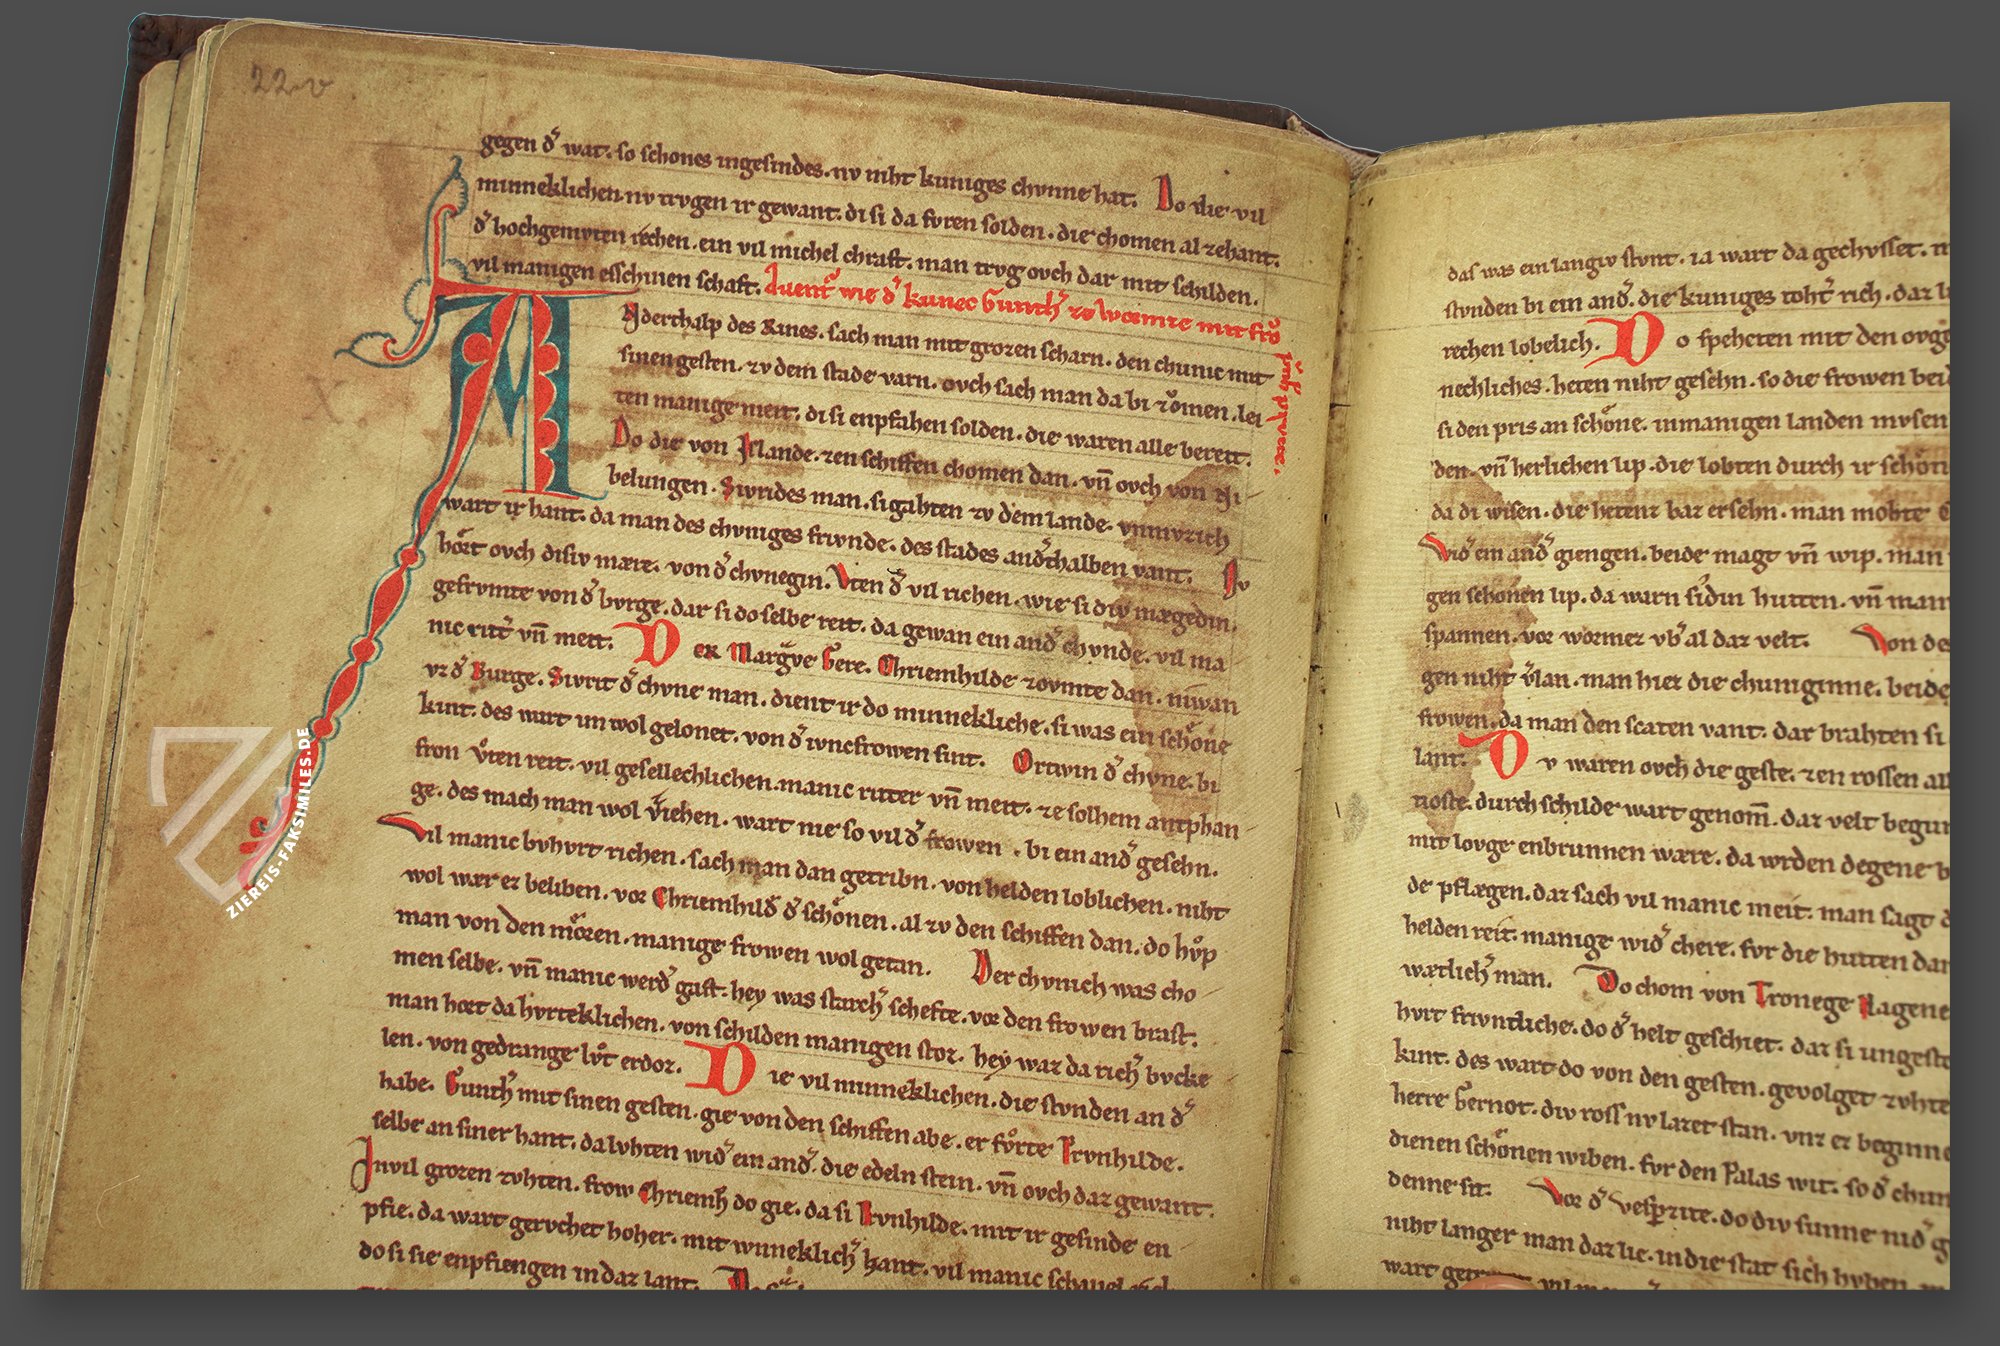 22v
gegen dˀ wat. so schones ingesindes. nv niht kuniges chvnne hat. Do die vil
minneklichen nv trvgen ir gewant. di si da fvren solden. die chomen al zehant.
dˀ hochgemvten rechen. ein vil michel chraft. man trvg ovch dar mit schilden.
vil manigen esschinen schaft. Auentˀ wie dˀ kunec Gunthˀ ze Wormze mit frŏ
prvnh
Anderthalp des Rines. sach man mit grozen scharn. den chunic mit
sinen gesten. zv dem stade varn. ovch sach man da bi zŏmen. lei
ten manige meit. di si enpfahen solden. die waren alle bereit.
Do die von Islande. zen schiffen chomen dan. vn̄ ovch von Ni-
belungen. Siwrides man. si gahten zv dem lande. vnmvzich
wart ir hant. da man des chvniges frivnde. des stades andˀthalben vant. Nv
hŏrt ovch disiv mære. von dˀ chvnegin. Vten dˀ vil richen. wie si div mægedin.
gefrvmte von dˀ bvrge. dar si do selbe reit. da gewan ein andˀ chvnde. vil ma
nic ritˀ vn̄ meit. Der Margve Gere. Chriemhilde zovmte dan. niwan
vz dˀ Burge. Sivrit dˀ chvne man. dient ir do minnekliche. si was ein schŏne
kint. des wart im wol gelonet. von dˀ ivncfrowen sint. Ortwin dˀ chvne. bi
fron vͦten reit. vil gesellechlichen. manic ritter vn̄ meit. ze solhem antphan
ge. des mach man wol v̄iehen. wart nie so vil dˀ frowen. bi ein andˀ gesehn.
Vil manic bvhvrt richen. sach man dan getribn. von helden loblichen. niht
wol wær ez beliben. vor Chriemhildˀ dˀ schŏnen. al zv den schiffen dan. do hvͦp
man von den mŏren. manige frowen wol getan. Der chvnich was cho
men selbe. vn̄ manic werdˀ gast. hey was starchˀ schefte. vor den frowen brast.
man hort da hvrteklichen. von schilden manigen stoz. hey waz da richˀ bvcke
len. von gedrange lvͦt erdoz. Die vil minneklichen. die stvnden an dˀ
habe. Gunthˀ mit sinen gesten. gie von den schiffen abe. er fvͦrte Prvnhilde.
selbe an siner hant. da lvhten widˀ ein andˀ. die edeln stein. vn̄ ovch daz gewant.
In vil grozen zvhten. frow Chriemh̄ do gie. da si Prvnhilde. mit ir gesinde en
pfie. da wart gervchet hoher. mit wnneklichˀ hant. vil manic schapel
do si sie enpfiengen in daz lant.
das was ein langiv stvnt. ia wart da gechvsset.
stvnden bi ein andˀ. die kuniges tohtˀ rich. daz
rechen lobelich. Do speheten mit den ovge
nechliches. heten niht gesehn. so die frowen bei
si den pris an schŏne. in manigen landen mvsen
den. vn̄ herlichen lip. die lobten durch ir schŏn
da di wisen. die hetenz baz ersehn. man mohte
Widˀ ein andˀ giengen. beide magt vn̄ wip. man
gen schŏnen lip. da warn sidin hutten. vn̄ man
spannen. vor wormez vbˀ al daz velt. Von de
gen niht vˀlan. man hiez die chuniginne. beide
frowen. da man den scaten vant. dar brahten si
lant. Nv waren ovch die geste. zen rossen all
tioste. durch schilde wart genom̄. daz velt begun
mit lovge enbrunnen wære. da wrden degene
de pflægen. daz sach vil manic meit. man sagt
helden reit. manige widˀ chere. fvr die hutten dan
wætlichˀ man. Do chom von Tronege Hagene
hvrt frivntliche. do dˀ helt geschiet. daz si ungest
kint. des wart do von den gesten. gevolget zvhte
herre Gernot. div ross nv lazet stan. vnz ez beginne
dienen schŏnen wiben. fvr den Palas wit. so dˀ chun
denne sit. Vor dˀ vesperzite. do div sunne nidˀ g
niht langer man daz lie. in die stat sich hvben.
wart
ZIEREIS-FAKSIMILES.DE